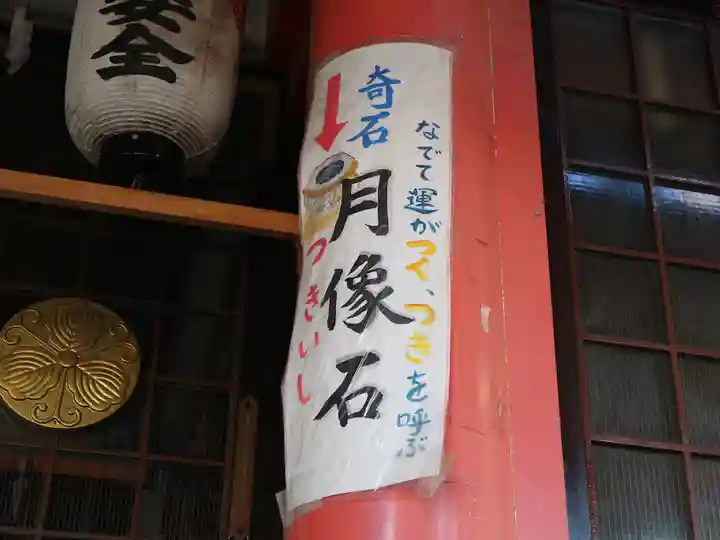 安全
なでて運がつく、つきを呼ぶ
奇石
月像石
つきいし